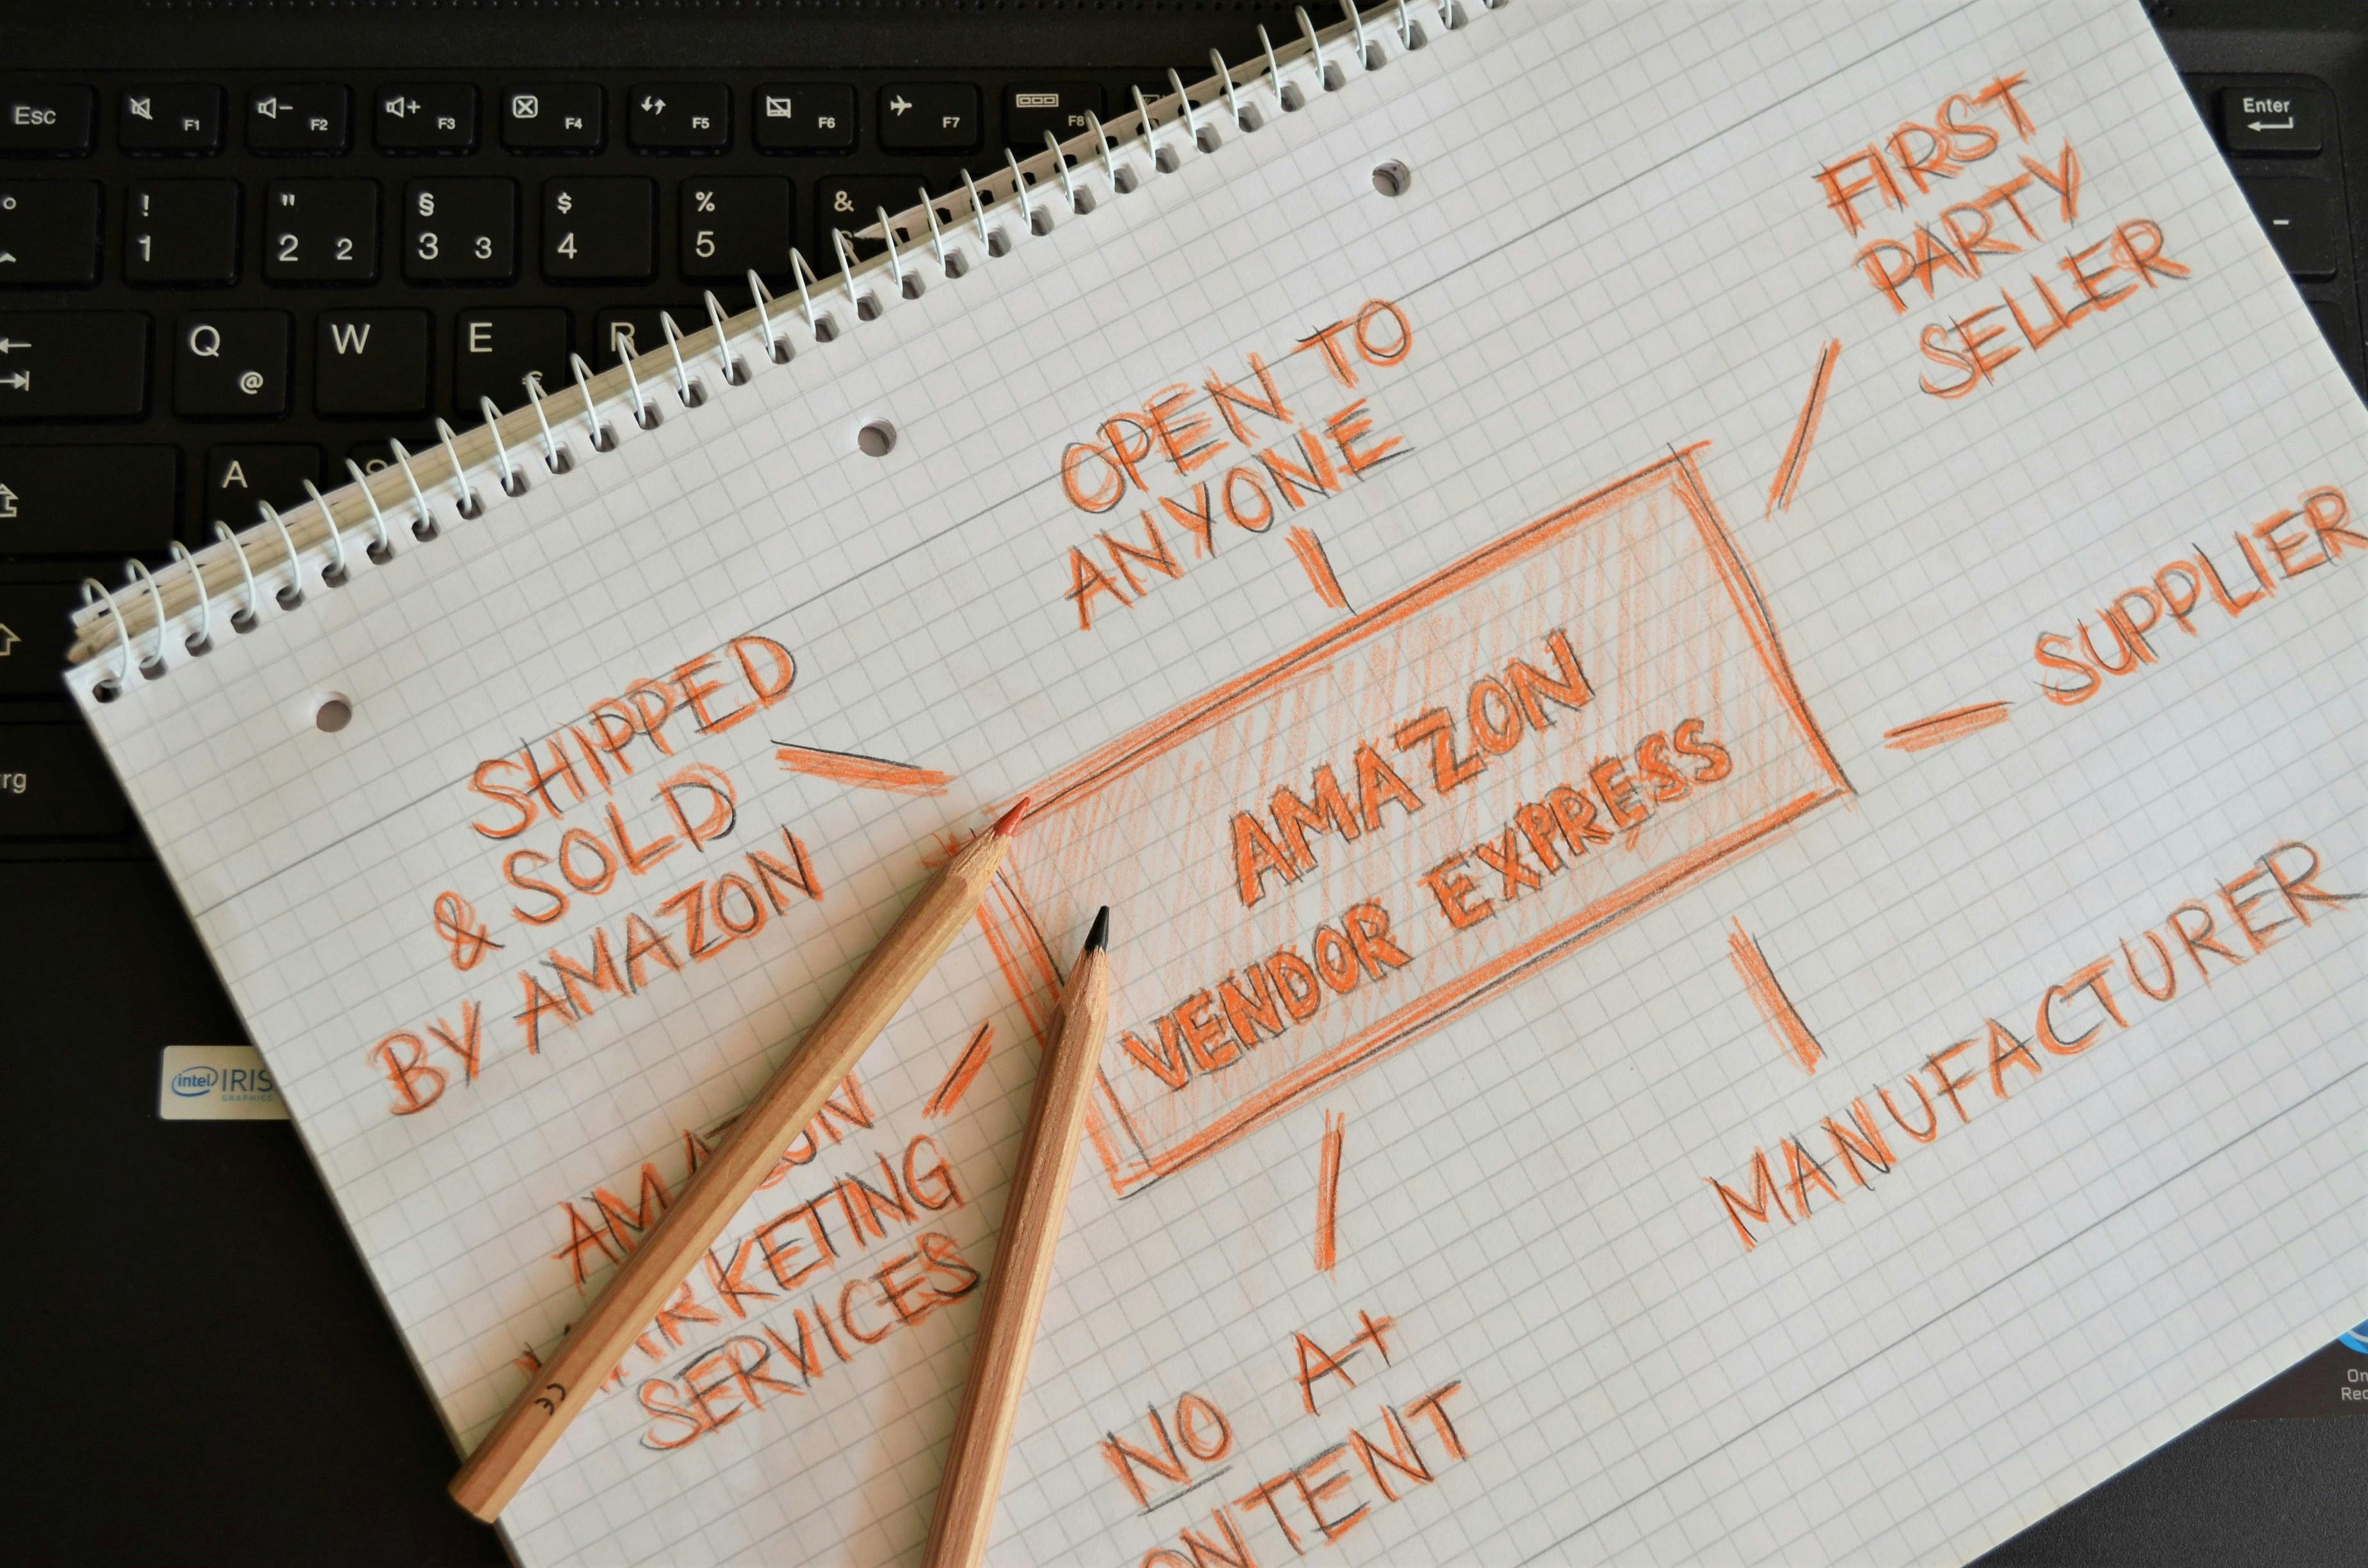 Esc
F1
F2
F3
F4
F5
F6
F7
F8
Enter
!
1
"
2 2
§
3 3
$
4
%
5
&
Q @
W
E
R
A
intel IRIS
GRAPHICS
FIRST
PARTY
SELLER
OPEN TO
ANYONE
SUPPLIER
SHIPPED
& SOLD
BY AMAZON
AMAZON
VENDOR EXPRESS
MANUFACTURER
AMAZON
MARKETING
SERVICES
NO A+
CONTENT
CE